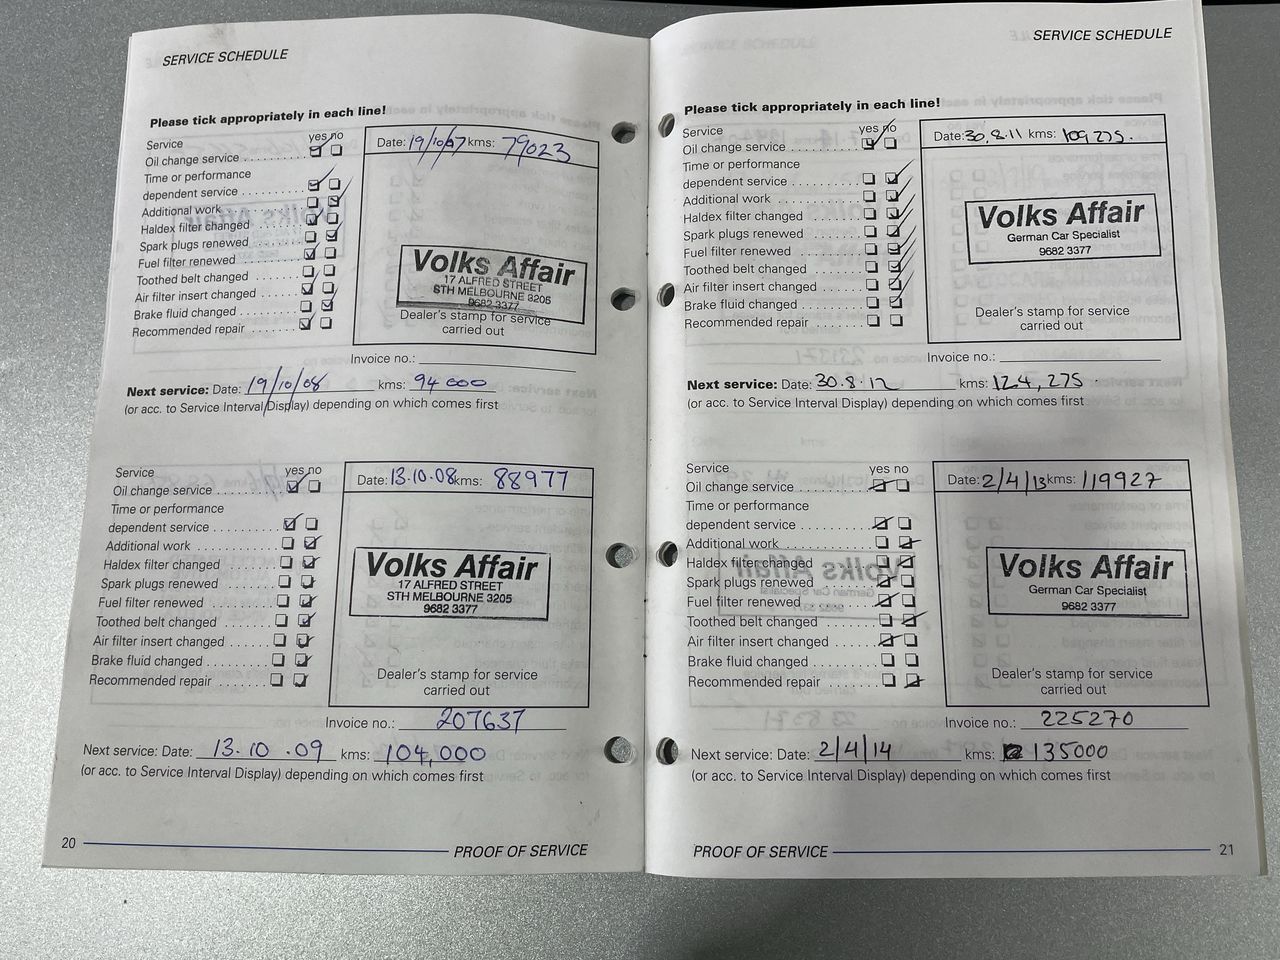 SERVICE SCHEDULE
Please tick appropriately in each line!
Service yes no
Oil change service
Time or performance
dependent service
Additional work
Haldex filter changed
Spark plugs renewed
Fuel filter renewed
Toothed belt changed
Air filter insert changed
Brake fluid changed
Recommended repair
Date: 19/10/07 kms: 79023
Volks Affair
17 ALFRED STREET
STH MELBOURNE 3205
9682 3377
Dealer's stamp for service
carried out
Invoice no.:
Next service: Date: 19/10/08 kms: 94000
(or acc. to Service Interval Display) depending on which comes first
Service yes no
Oil change service
Time or performance
dependent service
Additional work
Haldex filter changed
Spark plugs renewed
Fuel filter renewed
Toothed belt changed
Air filter insert changed
Brake fluid changed
Recommended repair
Date: 13.10.08 kms: 88977
Volks Affair
17 ALFRED STREET
STH MELBOURNE 3205
9682 3377
Dealer's stamp for service
carried out
Invoice no.: 207637
Next service: Date: 13.10.09 kms: 104,000
(or acc. to Service Interval Display) depending on which comes first
20 PROOF OF SERVICE
SERVICE SCHEDULE
Please tick appropriately in each line!
Service yes no
Oil change service
Time or performance
dependent service
Additional work
Haldex filter changed
Spark plugs renewed
Fuel filter renewed
Toothed belt changed
Air filter insert changed
Brake fluid changed
Recommended repair
Date: 30.8.11 kms: 109,275.
Volks Affair
German Car Specialist
9682 3377
Dealer's stamp for service
carried out
Invoice no.:
Next service: Date: 30.8.12 kms: 124,275.
(or acc. to Service Interval Display) depending on which comes first
Service yes no
Oil change service
Time or performance
dependent service
Additional work
Haldex filter changed
Spark plugs renewed
Fuel filter renewed
Toothed belt changed
Air filter insert changed
Brake fluid changed
Recommended repair
Date: 2/4/13 kms: 119927
Volks Affair
German Car Specialist
9682 3377
Dealer's stamp for service
carried out
Invoice no.: 225270
Next service: Date: 2/4/14 kms: 135000
(or acc. to Service Interval Display) depending on which comes first
PROOF OF SERVICE 21